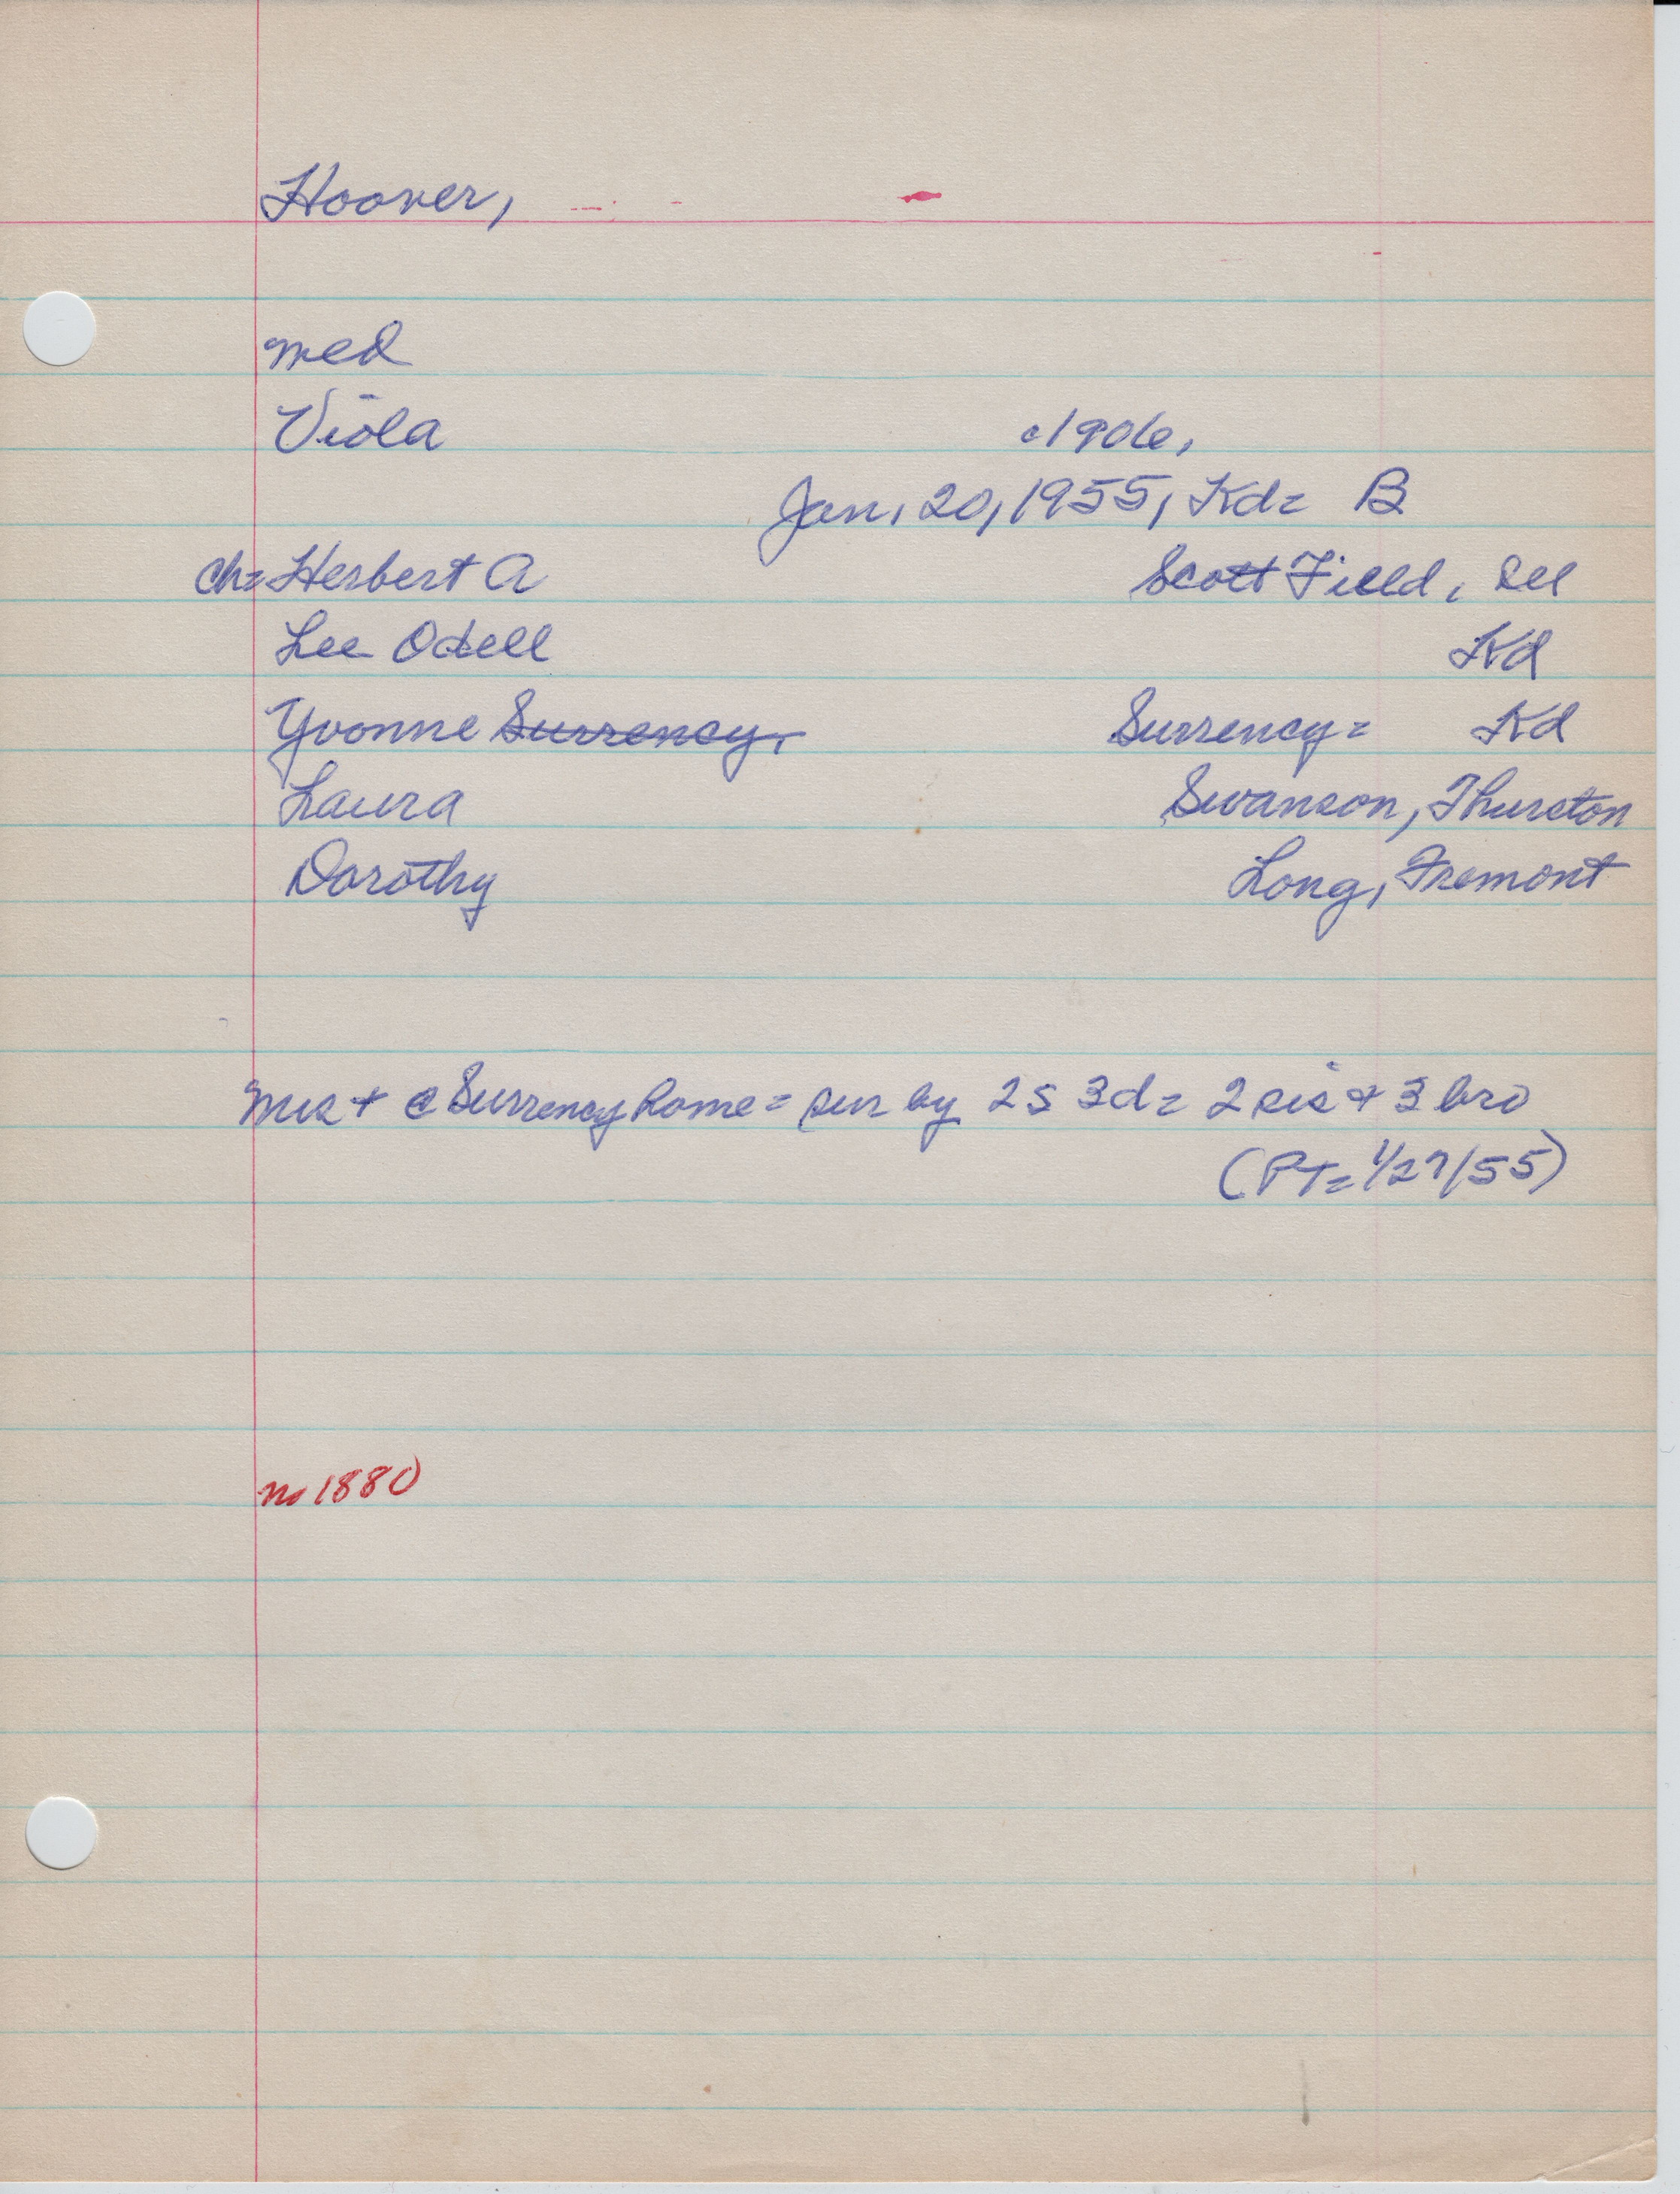 Hoover,
med
Viola c1906,
Jan, 20, 1955, Kd= B
ch= Herbert A Scott Field, Ill
Lee Odell Kd
Yvonne Surrency, Surrency= Kd
Laura Swanson, Thurston
Dorothy Long, Fremont
Mrs + @ Surrency home = sur by 2S 3d= 2 sis + 3 bro
(PT= 1/27/55)
no 1880